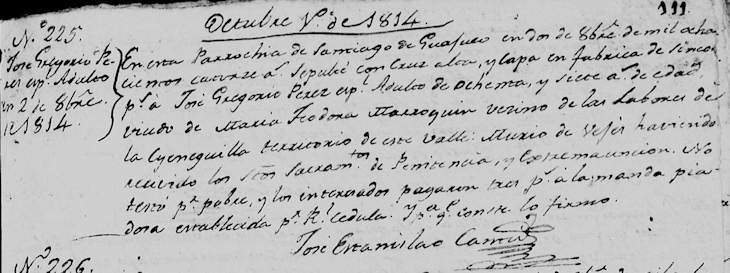 111
Octubre 1º de 1814.
Nº 225.
Jose Gregorio Pe-
res esp. Adulto
en 2 de 8bre.
de 1814.
En esta Parrochia de Santiago de Guajuco en dos de 8bre. de mil ocho-
cientos catorze as. Sepulté con Cruz alta, y capa en fabrica de cinco
ps. à José Gregorio Perez esp. Adulto de ochenta, y siete as. de edad,
viudo de Maria Teodora Marroquin vezino de las Labores de
la Cyeneguilla territorio de este Valle: Murio de Vejés haviendo
recivido los Stos. Sacramtos. de Penitencia, y Extremauncion. No
testó pr. pobre, y los interesados pagaron tres ps. à la manda pia-
dosa establecida pr. Rl. cedula. Y pa. q. conste lo firmo.
José Estanislao Cantú
Nº 226.